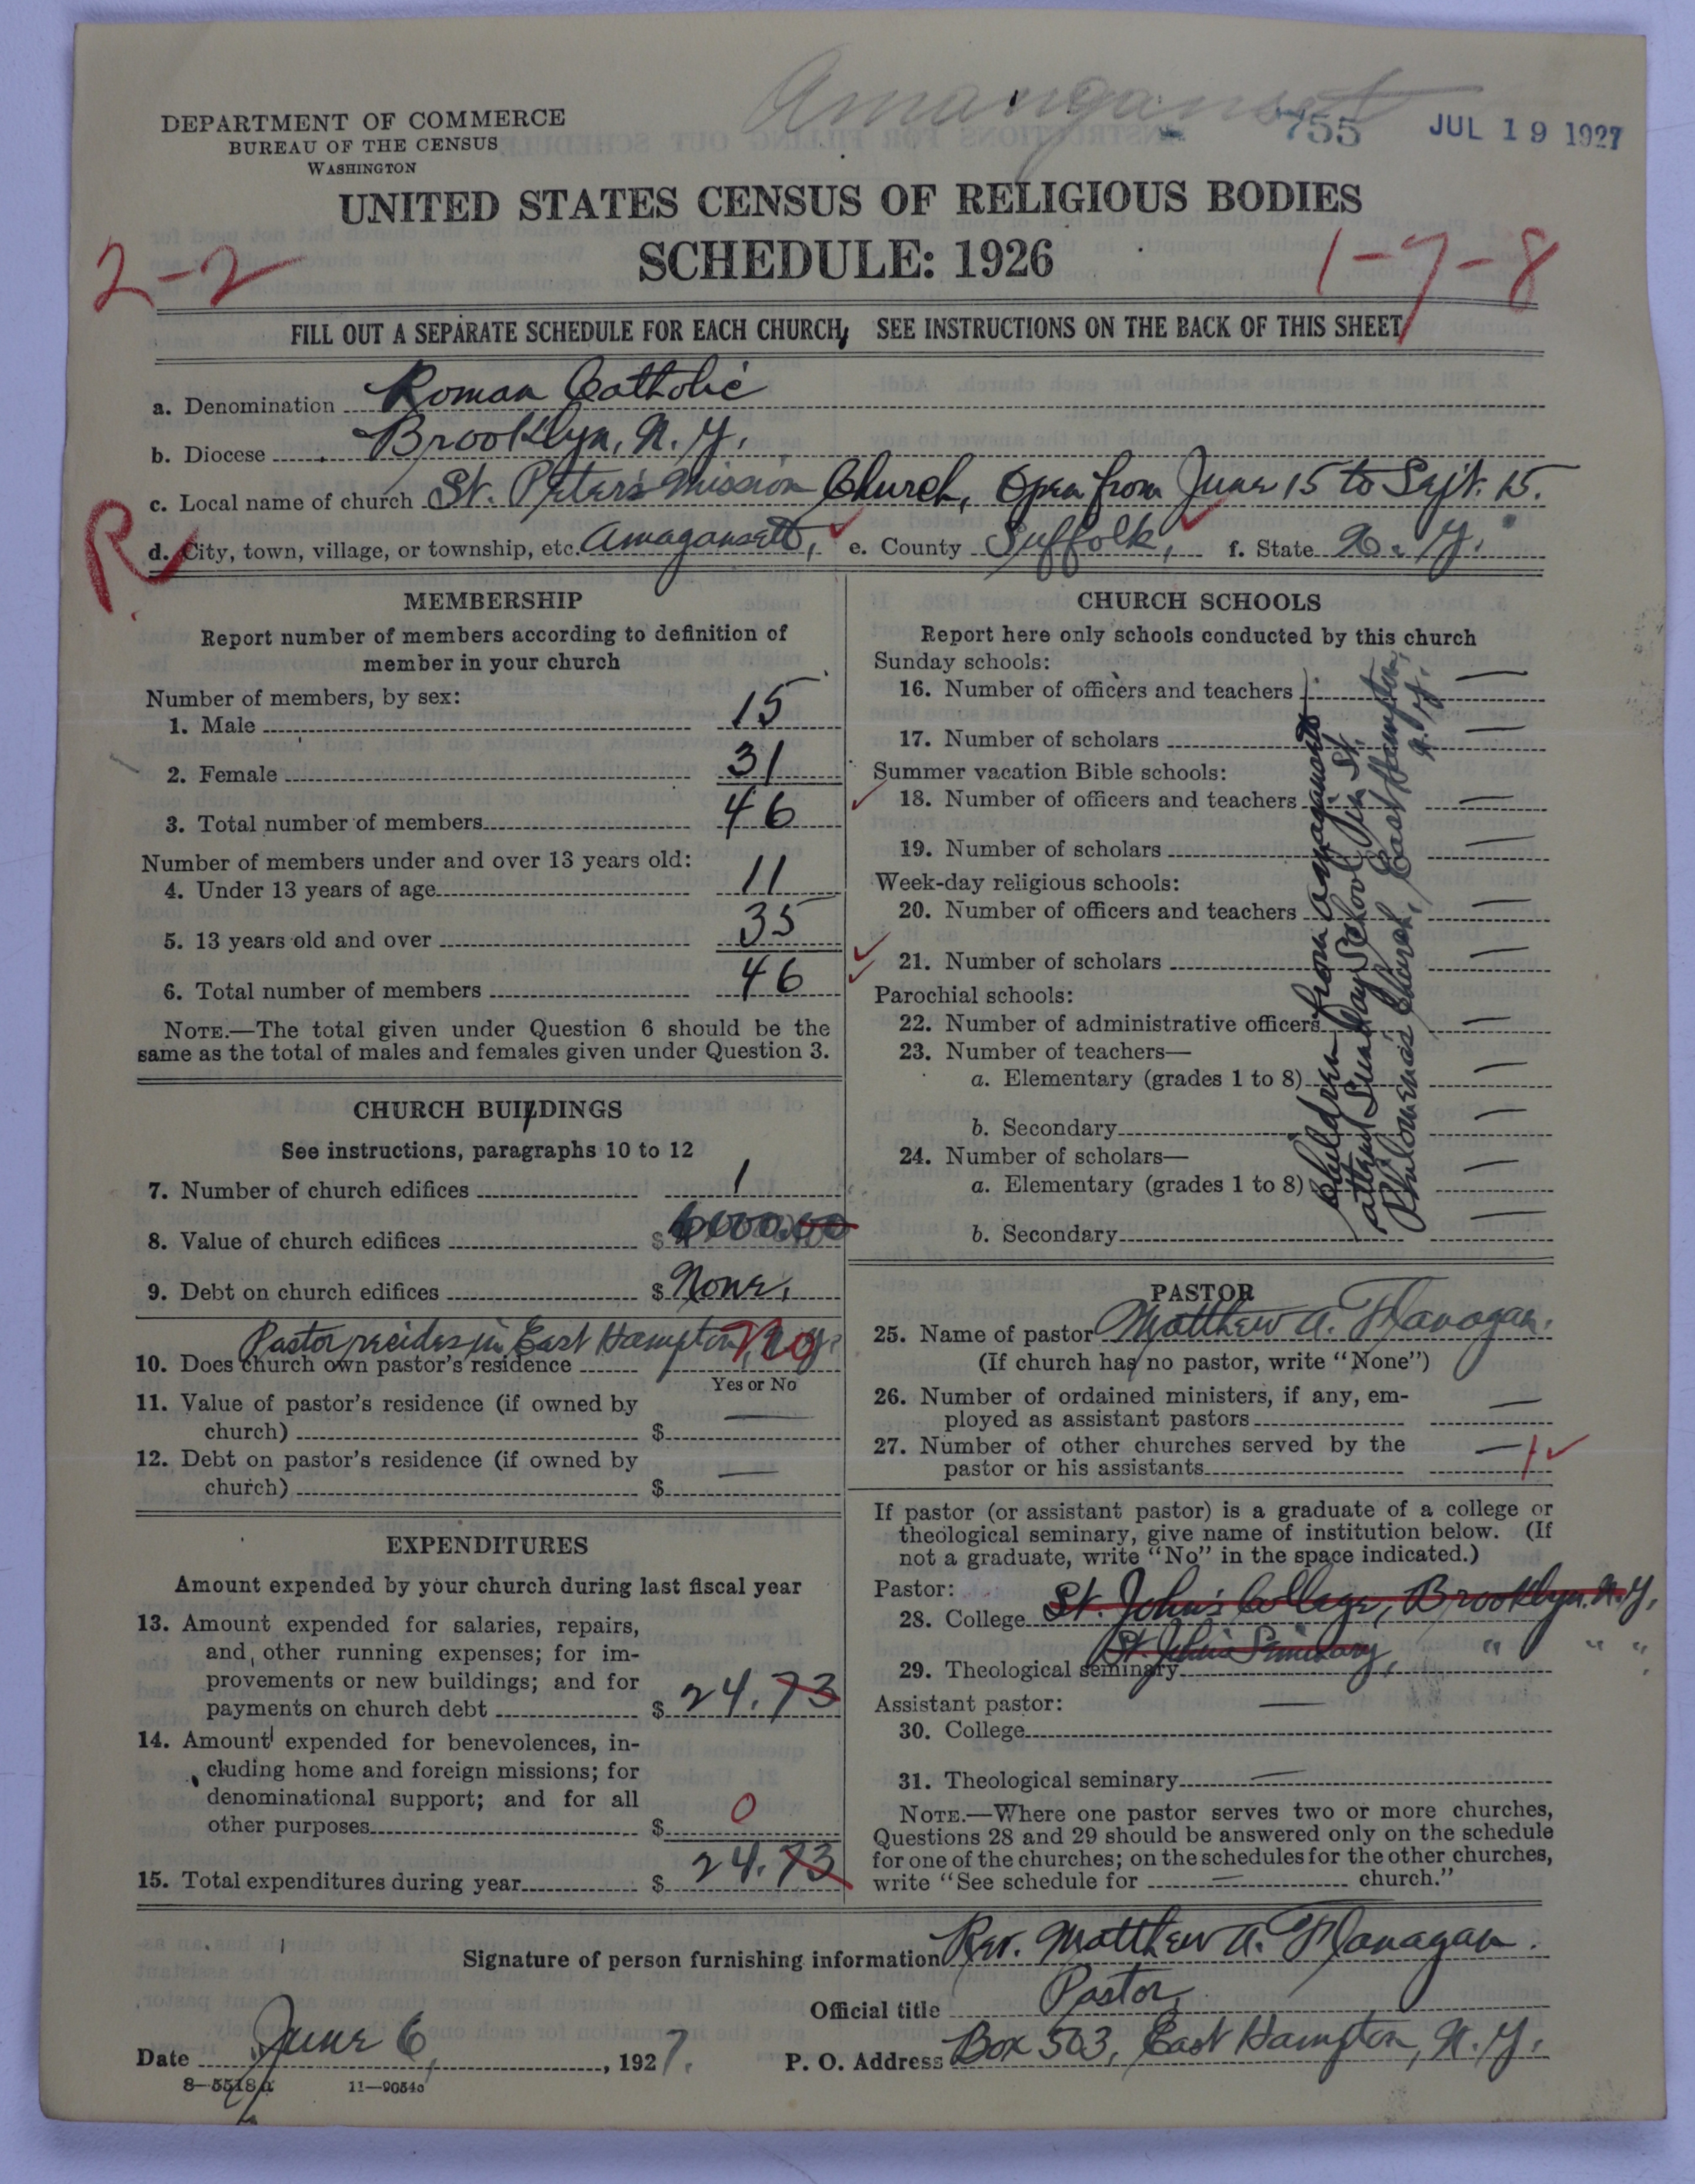 Amagansett
DEPARTMENT OF COMMERCE
BUREAU OF THE CENSUS
WASHINGTON
755 JUL 19 1927
UNITED STATES CENSUS OF RELIGIOUS BODIES
SCHEDULE: 1926
2-2
1-7-8
FILL OUT A SEPARATE SCHEDULE FOR EACH CHURCH, SEE INSTRUCTIONS ON THE BACK OF THIS SHEET
a. Denomination Roman Catholic
b. Diocese Brooklyn, N. Y.
c. Local name of church St. Peter's Mission Church, Open from June 15 to Sept. 15.
R
d. City, town, village, or township, etc. Amagansett, e. County Suffolk, f. State N. Y.
MEMBERSHIP
Report number of members according to definition of
member in your church
Number of members, by sex:
1. Male 15
2. Female 31
3. Total number of members 46
Number of members under and over 13 years old:
4. Under 13 years of age 11
5. 13 years old and over 35
6. Total number of members 46
NOTE.—The total given under Question 6 should be the
same as the total of males and females given under Question 3.
CHURCH BUILDINGS
See instructions, paragraphs 10 to 12
7. Number of church edifices 1
8. Value of church edifices $ 6000.00
9. Debt on church edifices $ None.
Pastor recides in East Hampton, N.Y.
10. Does church own pastor's residence No
Yes or No
11. Value of pastor's residence (if owned by
church) $ —
12. Debt on pastor's residence (if owned by
church) $ —
EXPENDITURES
Amount expended by your church during last fiscal year
13. Amount expended for salaries, repairs,
and other running expenses; for im-
provements or new buildings; and for
payments on church debt $ 24.73
14. Amount expended for benevolences, in-
cluding home and foreign missions; for
denominational support; and for all
other purposes $ 0
15. Total expenditures during year $ 24.73
CHURCH SCHOOLS
Report here only schools conducted by this church
Sunday schools:
16. Number of officers and teachers —
17. Number of scholars —
Summer vacation Bible schools:
18. Number of officers and teachers —
19. Number of scholars —
Week-day religious schools:
20. Number of officers and teachers —
21. Number of scholars —
Parochial schools:
22. Number of administrative officers —
23. Number of teachers—
a. Elementary (grades 1 to 8) —
b. Secondary —
24. Number of scholars—
a. Elementary (grades 1 to 8) —
b. Secondary —
Children from Amagansett
attend Sunday School in St.
Philomena's Church, East Hampton,
N. Y.
PASTOR
25. Name of pastor Matthew A. Flanagan.
(If church has no pastor, write "None")
26. Number of ordained ministers, if any, em-
ployed as assistant pastors —
27. Number of other churches served by the
pastor or his assistants — 1
If pastor (or assistant pastor) is a graduate of a college or
theological seminary, give name of institution below. (If
not a graduate, write "No" in the space indicated.)
Pastor:
28. College St. John's College, Brooklyn, N.Y.
29. Theological seminary St. John's Seminary, " " "
Assistant pastor: —
30. College
31. Theological seminary —
NOTE.—Where one pastor serves two or more churches,
Questions 28 and 29 should be answered only on the schedule
for one of the churches; on the schedules for the other churches,
write "See schedule for — church."
Signature of person furnishing information Rev. Matthew A. Flanagan.
Official title Pastor,
Date June 6, 1927. P. O. Address Box 503, East Hampton, N. Y.
8—5518a 11—9054c